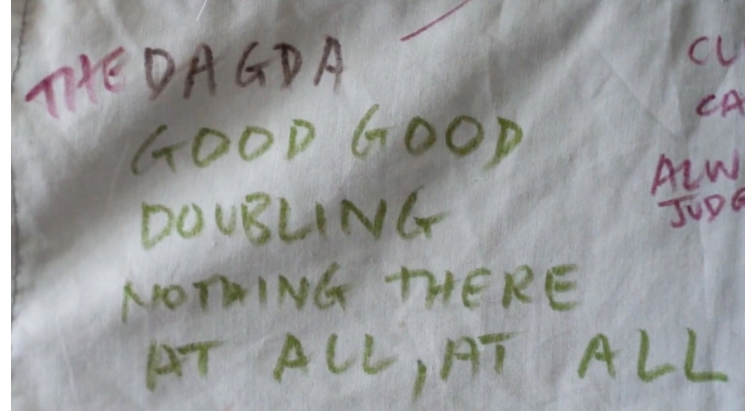 THE DAGDA
GOOD GOOD
DOUBLING
NOTHING THERE
AT ALL, AT ALL